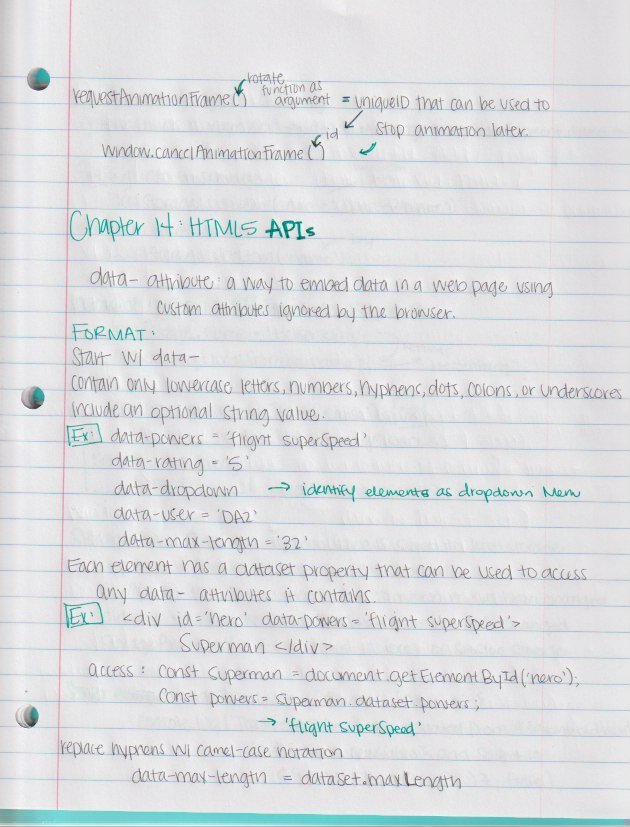 rotate
function as
requestAnimationFrame() argument = uniqueID that can be used to
id stop animation later.
window.cancelAnimationFrame()
Chapter 14: HTML5 APIs
data- attribute: a way to embed data in a web page using
custom attributes ignored by the browser.
FORMAT:
Start w/ data-
contain only lowercase letters, numbers, hyphens, dots, colons, or underscores
include an optional string value.
Ex: data-powers = 'flight superSpeed'
data-rating = '5'
data-dropdown → identify elements as dropdown Menu
data-user = 'DAZ'
data-max-length = '32'
Each element has a dataset property that can be used to access
any data- attributes it contains.
Ex: <div id='hero' data-powers='flight superSpeed'>
Superman </div>
access: const superman = document.getElementById('hero');
const powers = superman.dataset.powers;
→ 'flight superSpeed'
replace hyphens w/ camel-case notation
data-max-length = dataset.maxLength